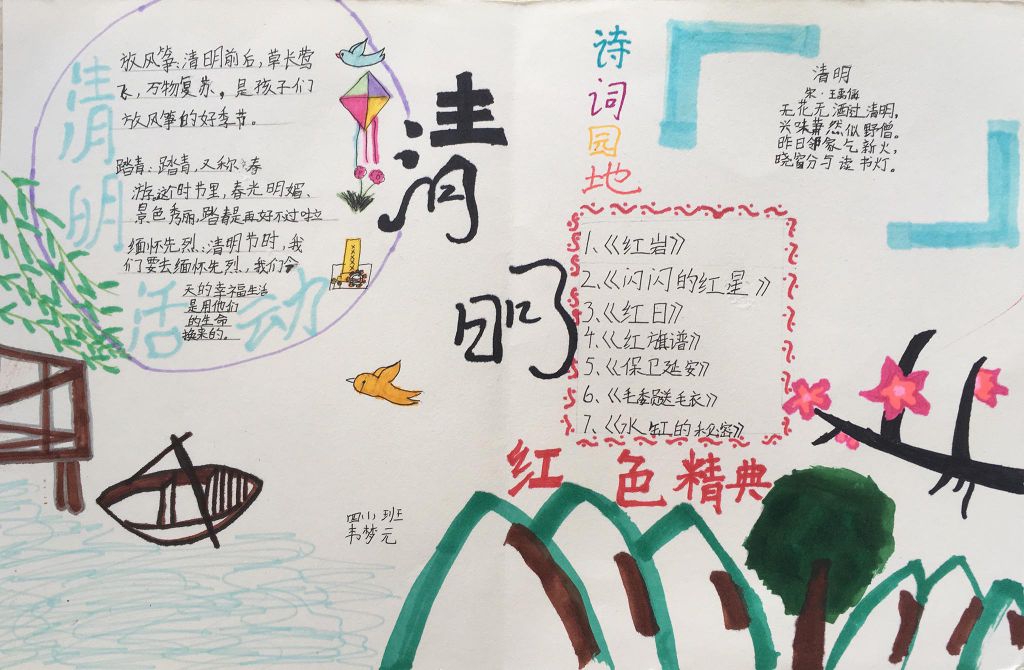 清明
活动
放风筝:清明前后,草长莺
飞,万物复苏。是孩子们
放风筝的好季节。
踏青:踏青,又称:春
游,这个时节里,春光明媚、
景色秀丽,踏青是再好不过啦
缅怀先烈:清明节时,我
们要去缅怀先烈,我们今
天的幸福生活
是用他们
的生命
换来的。
清
明
四小班
韦梦元
诗
词
园
地
清明
宋·王禹偁
无花无酒过清明,
兴味萧然似野僧。
昨日邻家乞新火,
晓窗分与读书灯。
1、《红岩》
2、《闪闪的红星》
3、《红日》
4、《红旗谱》
5、《保卫延安》
6、《毛委员送毛衣》
7、《水缸的秘密》
红色精典